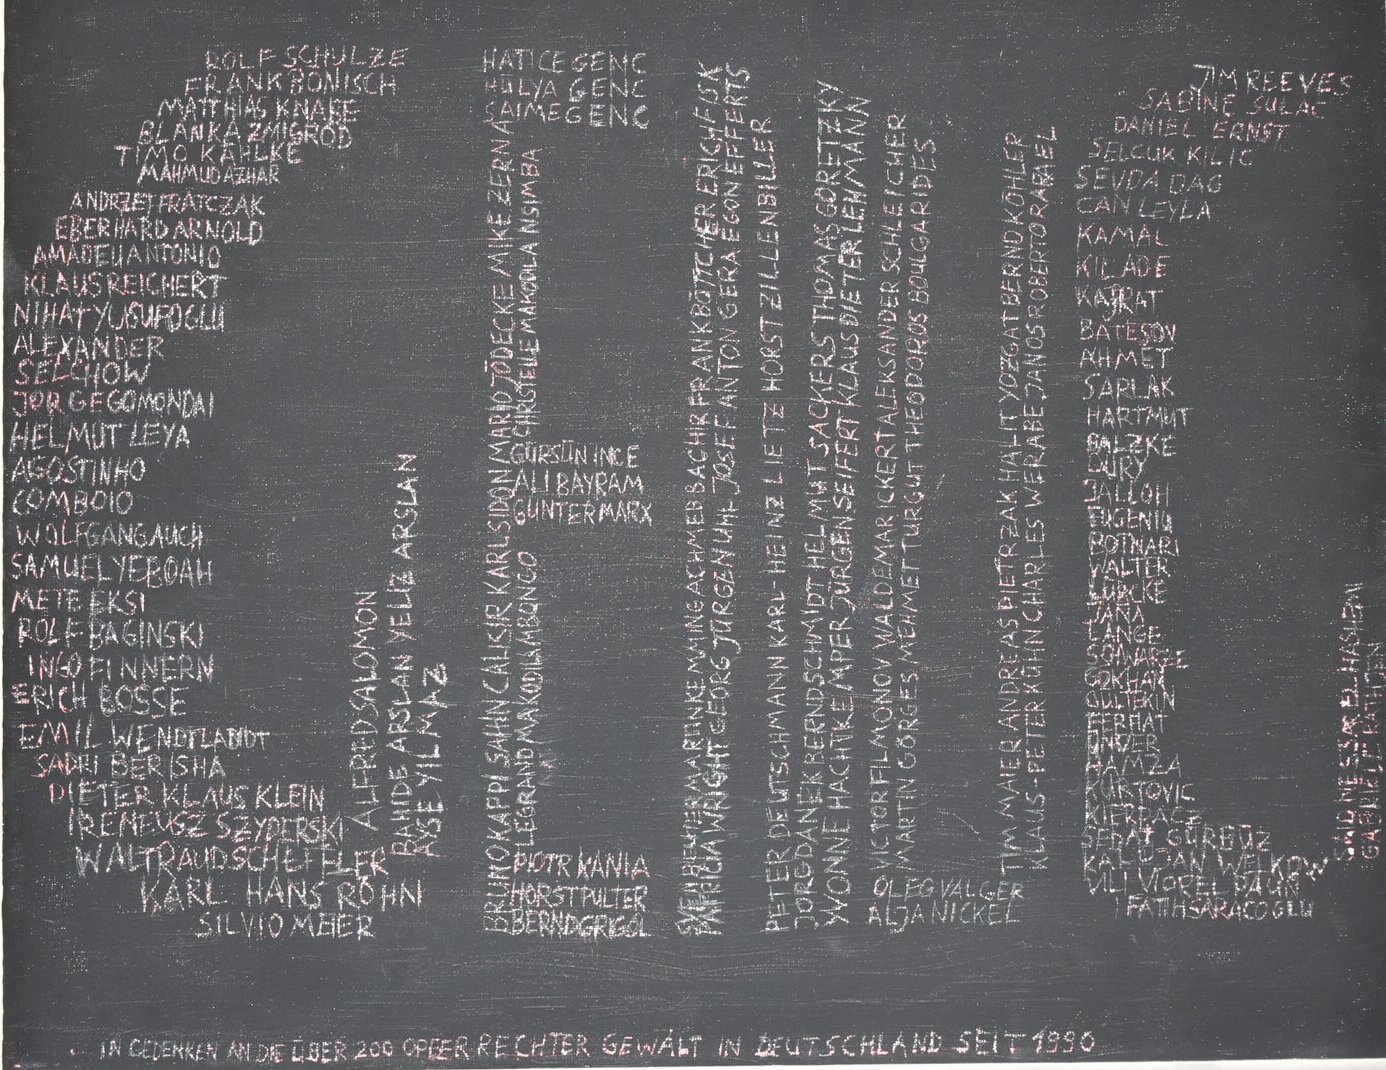 ROLF SCHULZE
FRANK BÖNISCH
MATTHIAS KNABE
BLANKA ZMIGROD
TIMO KÄHLKE
MAHMUD AZHAR
ANDRZEJ FRATCZAK
EBERHARD ARNOLD
AMADEU ANTONIO
KLAUS REICHERT
NIHAT YUSUFOGLU
ALEXANDER
SELCHOW
JORGE GOMONDAI
HELMUT LEYA
AGOSTINHO
COMBOIO
WOLFGANG AUCH
SAMUEL YEBOAH
METE EKSI
ROLF BAGINSKI
INGO FINNERN
ERICH BOSSE
EMIL WENDTLANDT
SADRI BERISHA
DIETER KLAUS KLEIN
IRENEUSZ SZYDERSKI
WALTRAUD SCHEFFLER
KARL HANS ROHN
SILVIO MEIER
ALFRED SALOMON
BAHIDE ARSLAN YELIZ ARSLAN
AYSE YILMAZ
HATICE GENC
HÜLYA GENC
SAIME GENC
BRUNO KAPPI SAHIN CALISIR KARL SIDON MARIO JÖDECKE MIKE ZERNA
LEGRAND MAKODILA MBONGO CHRISTELLE MAKODILA NSIMBA
GÜRSÜN INCE
ALI BAYRAM
GUNTER MARX
PIOTR KANIA
HORST PULTER
BERND GRIGOL
SVEN BEUTER MARTIN KEMMING ACHMED BACHIR FRANK BÖTTCHER ERICH FISK
PATRICIA WRIGHT GEORG JÜRGEN UHL JOSEF ANTON GERA EGON EFFERTS
PETER DEUTSCHMANN KARL-HEINZ LIETZ HORST ZILLENBILLER
JORG DANEK BERND SCHMIDT HELMUT SACKERS THOMAS GORETZKY
YVONNE HACHTKEMPER JÜRGEN SEIFERT KLAUS DIETER LEHMANN
VICTOR FILMONOV WALDEMAR ICKERT ALEKSANDER SCHLEICHER
MARTIN GÖRGES MEHMET TURGUT THEODOROS BOULGARIDES
OLEG VALGER
ALJA NICKEL
TIM MAIER ANDREAS PIETRZAK HALIT YOZGAT BERND KÖHLER
KLAUS-PETER KÜHN CHARLES WERABE JANOS ROBERTO RAFAEL
JIM REEVES
SABINE SULAC
DANIEL ERNST
SELCUK KILIC
SEVDA DAG
CAN LEYLA
KAMAL
KILADE
KAJRAT
BATESOV
AHMET
SARLAK
HARTMUT
BALZKE
OURY
JALLOH
EUGENIU
BOTNARI
WALTER
LÜBCKE
JANA
LANGE
SCHWARZE
GÖKHAN
GÜLTEKIN
FERHAT
UNVER
HAMZA
KURTOVIC
KIERPACZ
SEDAT GÜRBÜZ
KALOJAN WELKOW
VILI VIOREL PAUN
FATIH SARACOGLU
SAID NESAR EL HASHEMI
GABRIELE RATHJEN
IN GEDENKEN AN DIE ÜBER 200 OPFER RECHTER GEWALT IN DEUTSCHLAND SEIT 1990